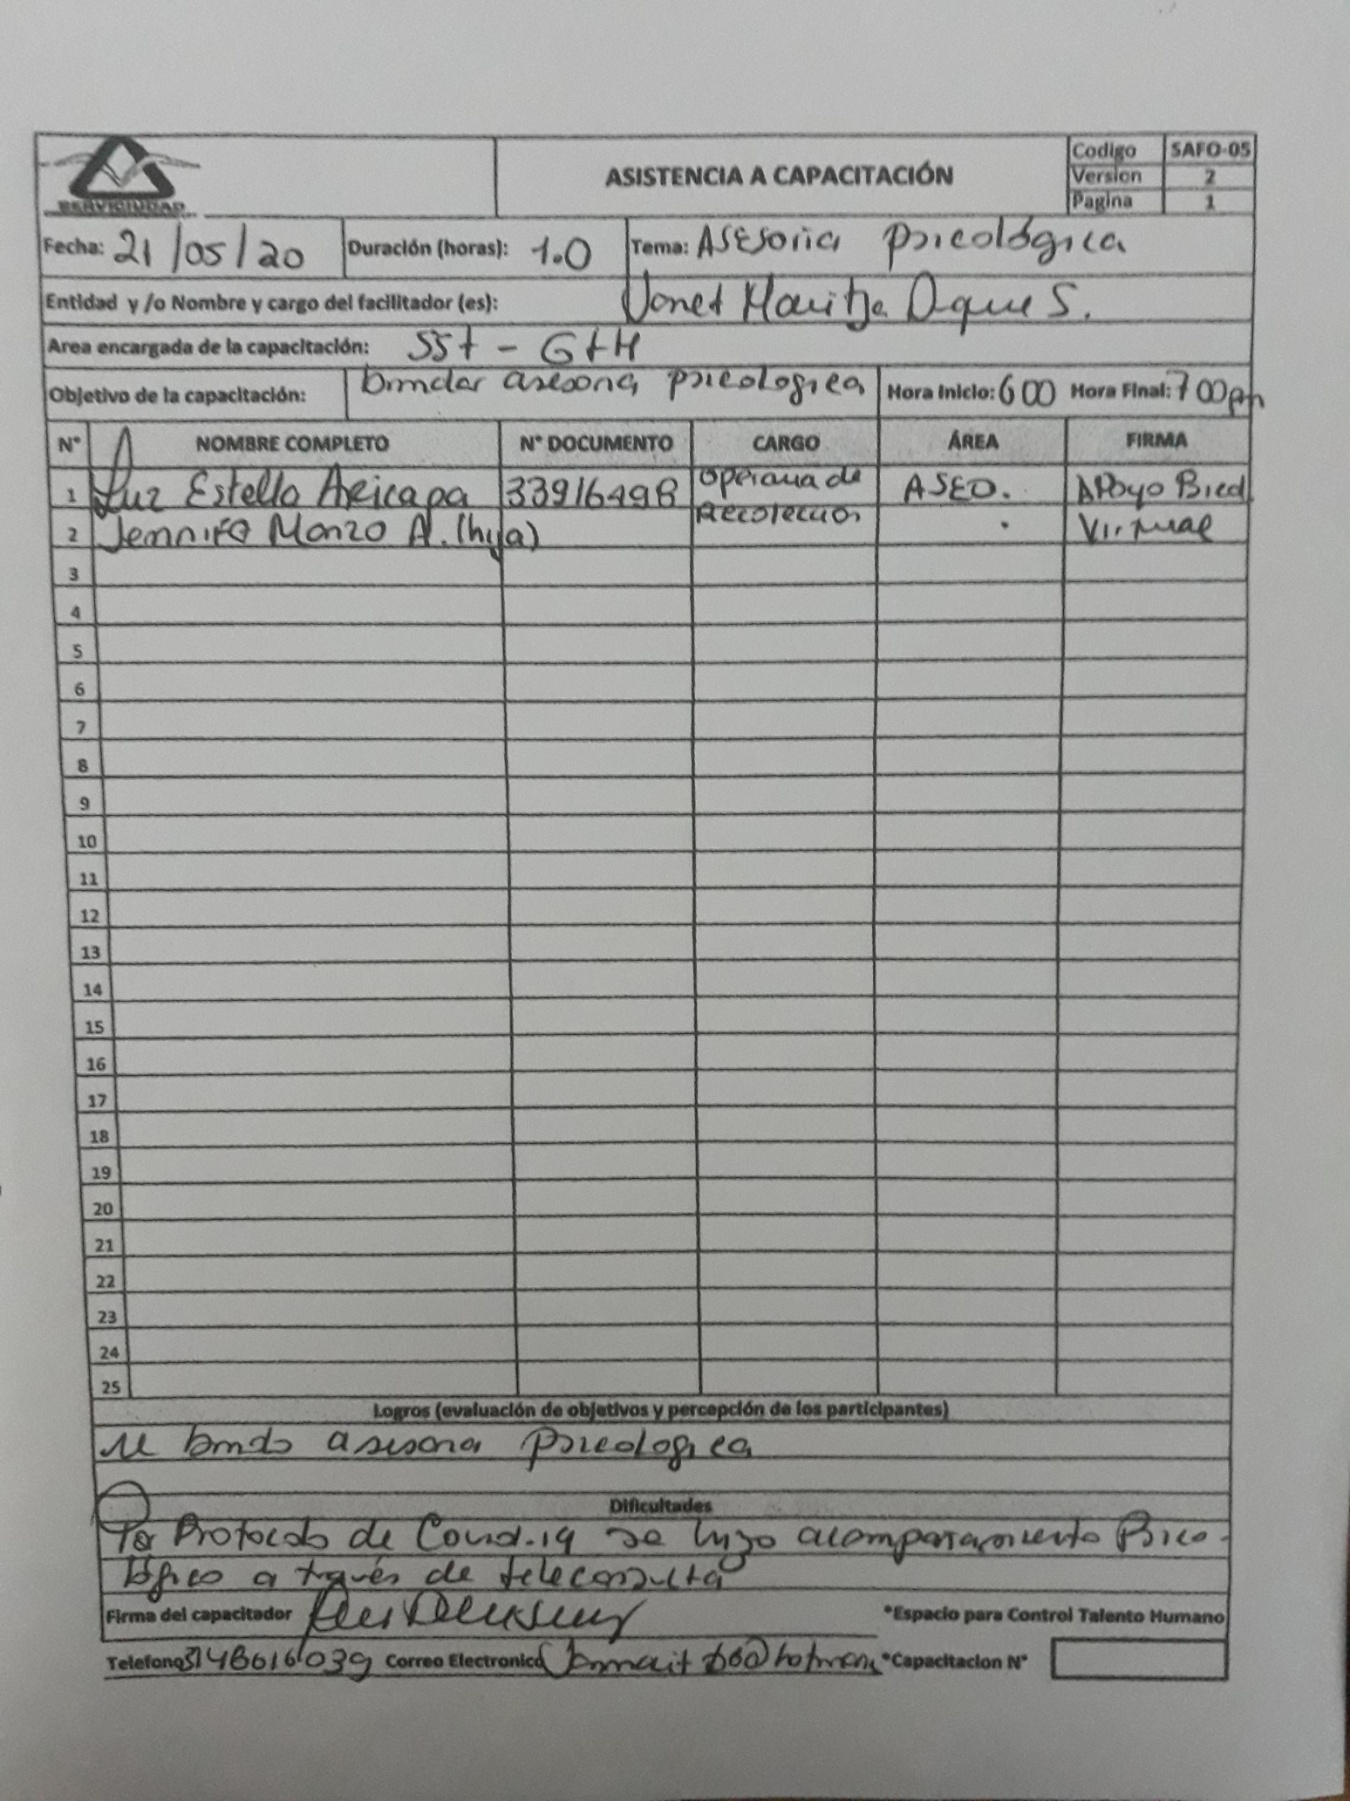 SERVICIUDAD
ASISTENCIA A CAPACITACIÓN
Codigo SAFO-05
Version 2
Pagina 1
Fecha: 21/05/20 Duración (horas): 1.0 Tema: Asesoria psicológica
Entidad y /o Nombre y cargo del facilitador (es): Yanet Maritza Duque S.
Area encargada de la capacitación: SST - GtH
Objetivo de la capacitación: brindar asesoria psicologica Hora Inicio: 6 00 Hora Final: 7 00 pm
N° NOMBRE COMPLETO N° DOCUMENTO CARGO ÁREA FIRMA
1 Luz Estella Aricapa 33916498 operaria de ASEO. Apoyo
2 Jennifer Monzo A. (hija) Recoleccion Virtual
3
4
5
6
7
8
9
10
11
12
13
14
15
16
17
18
19
20
21
22
23
24
25
Logros (evaluación de objetivos y percepción de los participantes)
se brindo asesoria Psicologica
Dificultades
Por Protocolo de Covid-19 se hizo acompañamiento Psico-
lógico a través de teleconsulta
Firma del capacitador *Espacio para Control Talento Humano
Telefono 3148616039 Correo Electronico *Capacitacion N°